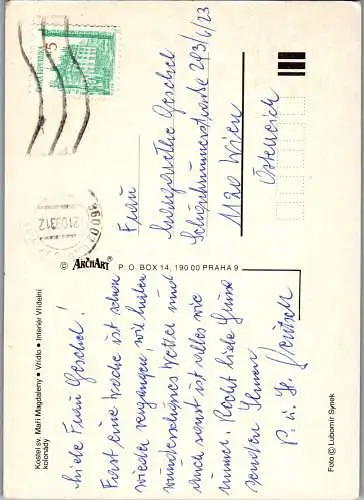 Kostel sv. Maří Magdaleny • Vřídlo • Interiér Vřídelní
kolonády
Liebe Frau Geschel!
Fast eine Woche ist schon
wieder vergangen, wir hatten
wunderschönes Wetter und
auch sonst ist alles wie
immer. Recht liebe Grüsse
senden Ihnen
P. u. H.
© ARCHART P. O. BOX 14, 190 00 PRAHA 9
Foto © Lubomír Synek
5
Frau
Margarethe Geschel
293/6/23
1120 Wien
Österreich